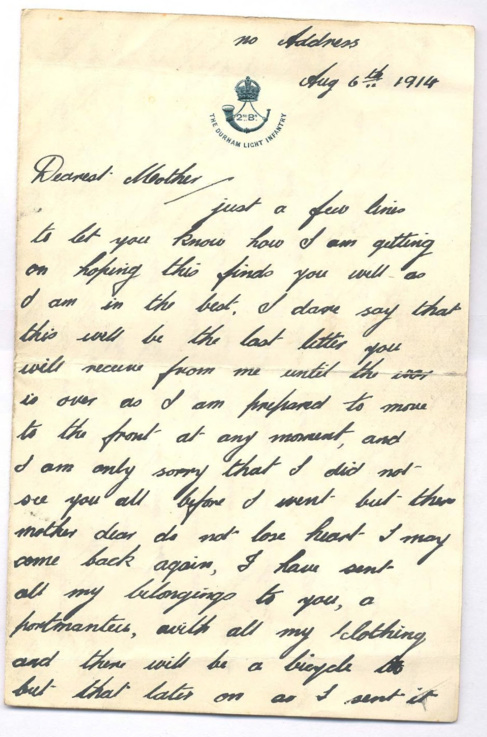 no Address
Aug 6th 1914
2nd Bn
THE DURHAM LIGHT INFANTRY
Dearest Mother
just a few lines
to let you know how I am getting
on hoping this finds you well as
I am in the best, I dare say that
this will be the last letter you
will receive from me until the war
is over as I am prepared to move
to the front at any moment, and
I am only sorry that I did not
see you all before I went but then
mother dear do not lose heart I may
come back again, I have sent
all my belongings to you, a
portmanteu, with all my clothing
and there will be a bicycle
but that later on as I sent it